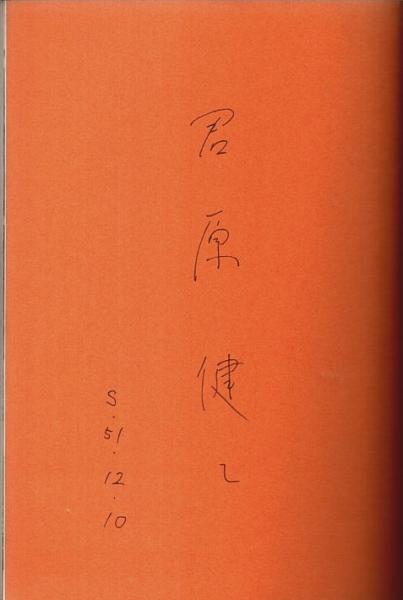 君原健二
S.51.12.10